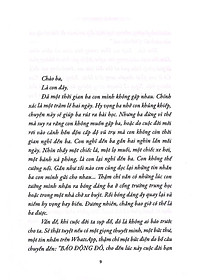 Chào ba,
Là con đây.
Đã một thời gian ba con mình không gặp nhau. Chính
xác là một trăm lẻ hai ngày. Hy vọng ba nhớ con khủng khiếp,
chuyện này sẽ giúp ba rút ra bài học. Nhưng ba đừng có
thể suy ra rằng con không muốn gặp ba, hoặc do cuộc đời mới
với vào cảnh hỗn độn cấp độ vũ trụ mà con không còn thời
gian nghĩ đến ba. Con nghĩ đến ba gần hai nghìn lần mỗi
ngày. Nhìn thấy một chiếc lá, một ly muối, một chiếc xe hơi,
một bánh xà phòng, là con lại nghĩ đến ba. Con không thể
cưỡng nổi. Gần như đêm nào con cũng đọc lại những tin nhắn
ba con mình gửi cho nhau... Thậm chí còn có những lúc con
tưởng mình trông ra bóng dáng ba ở cổng trường trung học
hoặc trong một nhà chờ xe buýt. Rồi bóng dáng ấy quay lại và
niềm hy vọng biến mất. Đương nhiên, chẳng bao giờ có thể là
ba.
Vấn đề, khi cuộc đời ta sụp đổ, đó là không ai báo trước
cho ta. Sẽ thật tuyệt nếu có một giọng thuyết minh, một bức thư,
một tin nhắn trên WhatsApp, thậm chí một bức điện đã bổ câu
chuyển đến: "BÁO ĐỘNG ĐỎ, cho đến lúc này cuộc đời bạn
9